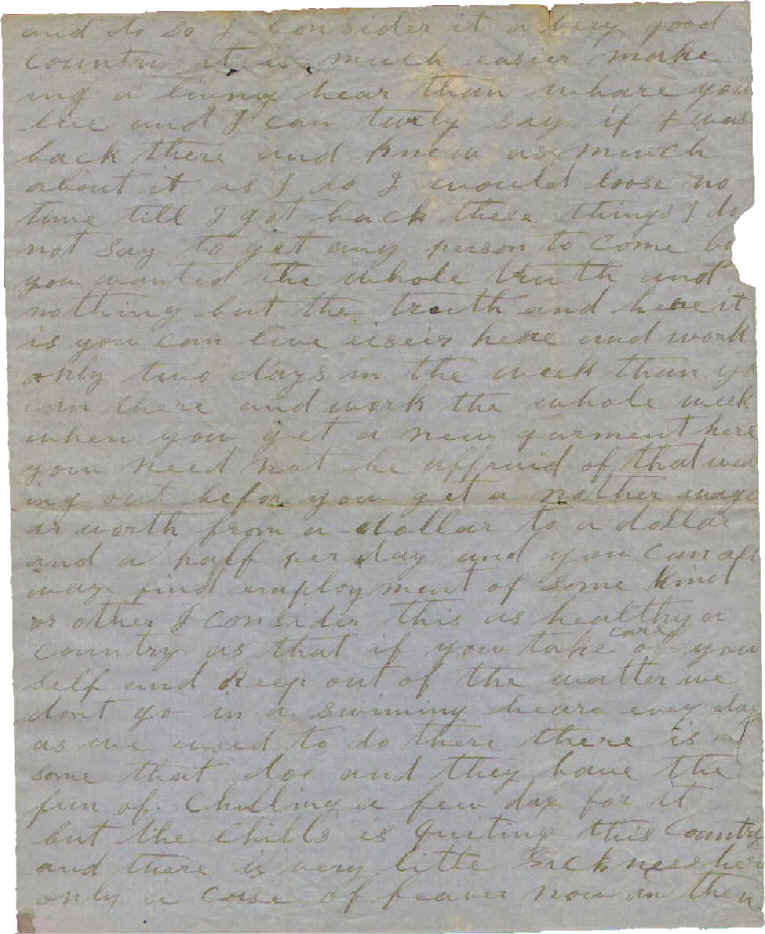 and to do so I consider it a very good
country it is much easier make
ing a living hear than whare you
live and I can turly say if I was
back there and knew as much
about it as I do I would loose no
time till I got back these things I do
not say to get any person to come bu
you wanted the whole truth and
nothing but the truth and heare it
is you can live eiseir heare and work
only two days in the week than yo
can there and work the whole week
when you get a new garment here
you need not be affraid of that wea
ing out befor you get a nother wage
ar worth from a dollar to a dollar
and a half per day and you can all
way find employment of some kind
or other I consider this as healthy a
country as that if you take care of you
self and keep out of the watter we
dont go in a swiming heare evry day
as we used to do there there is
some that dos and they have the
fun of Chilling a few day for it
but the Chills is quiting this Country
and there is very little sickness her
only a case of feaver now an then